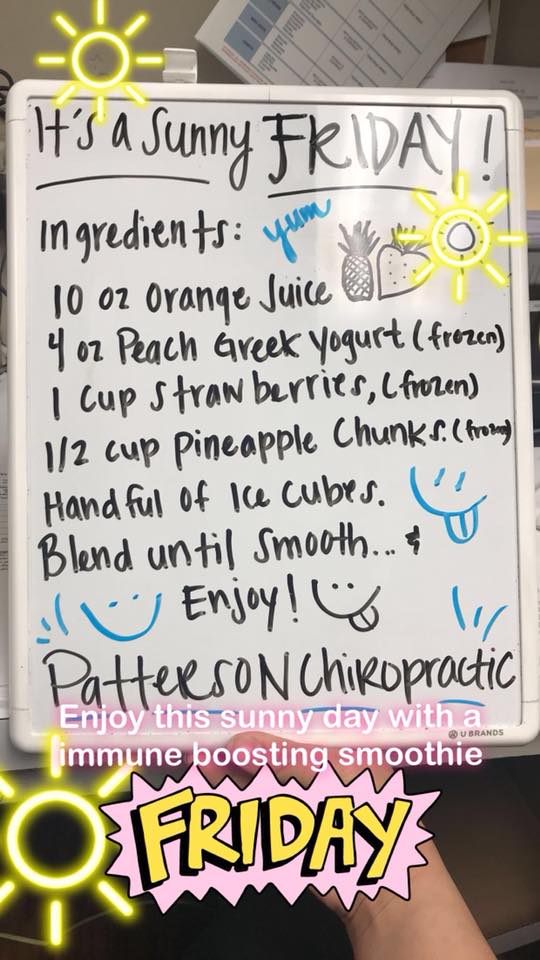 It's a Sunny FRIDAY!
Ingredients: yum
10 oz Orange Juice
4 oz Peach Greek Yogurt (frozen)
1 cup strawberries, (frozen)
1/2 cup pineapple Chunks. (frozen)
Handful of Ice Cubes.
Blend until Smooth... &
Enjoy!
Patterson Chiropractic
U BRANDS
Enjoy this sunny day with a
immune boosting smoothie
FRIDAY